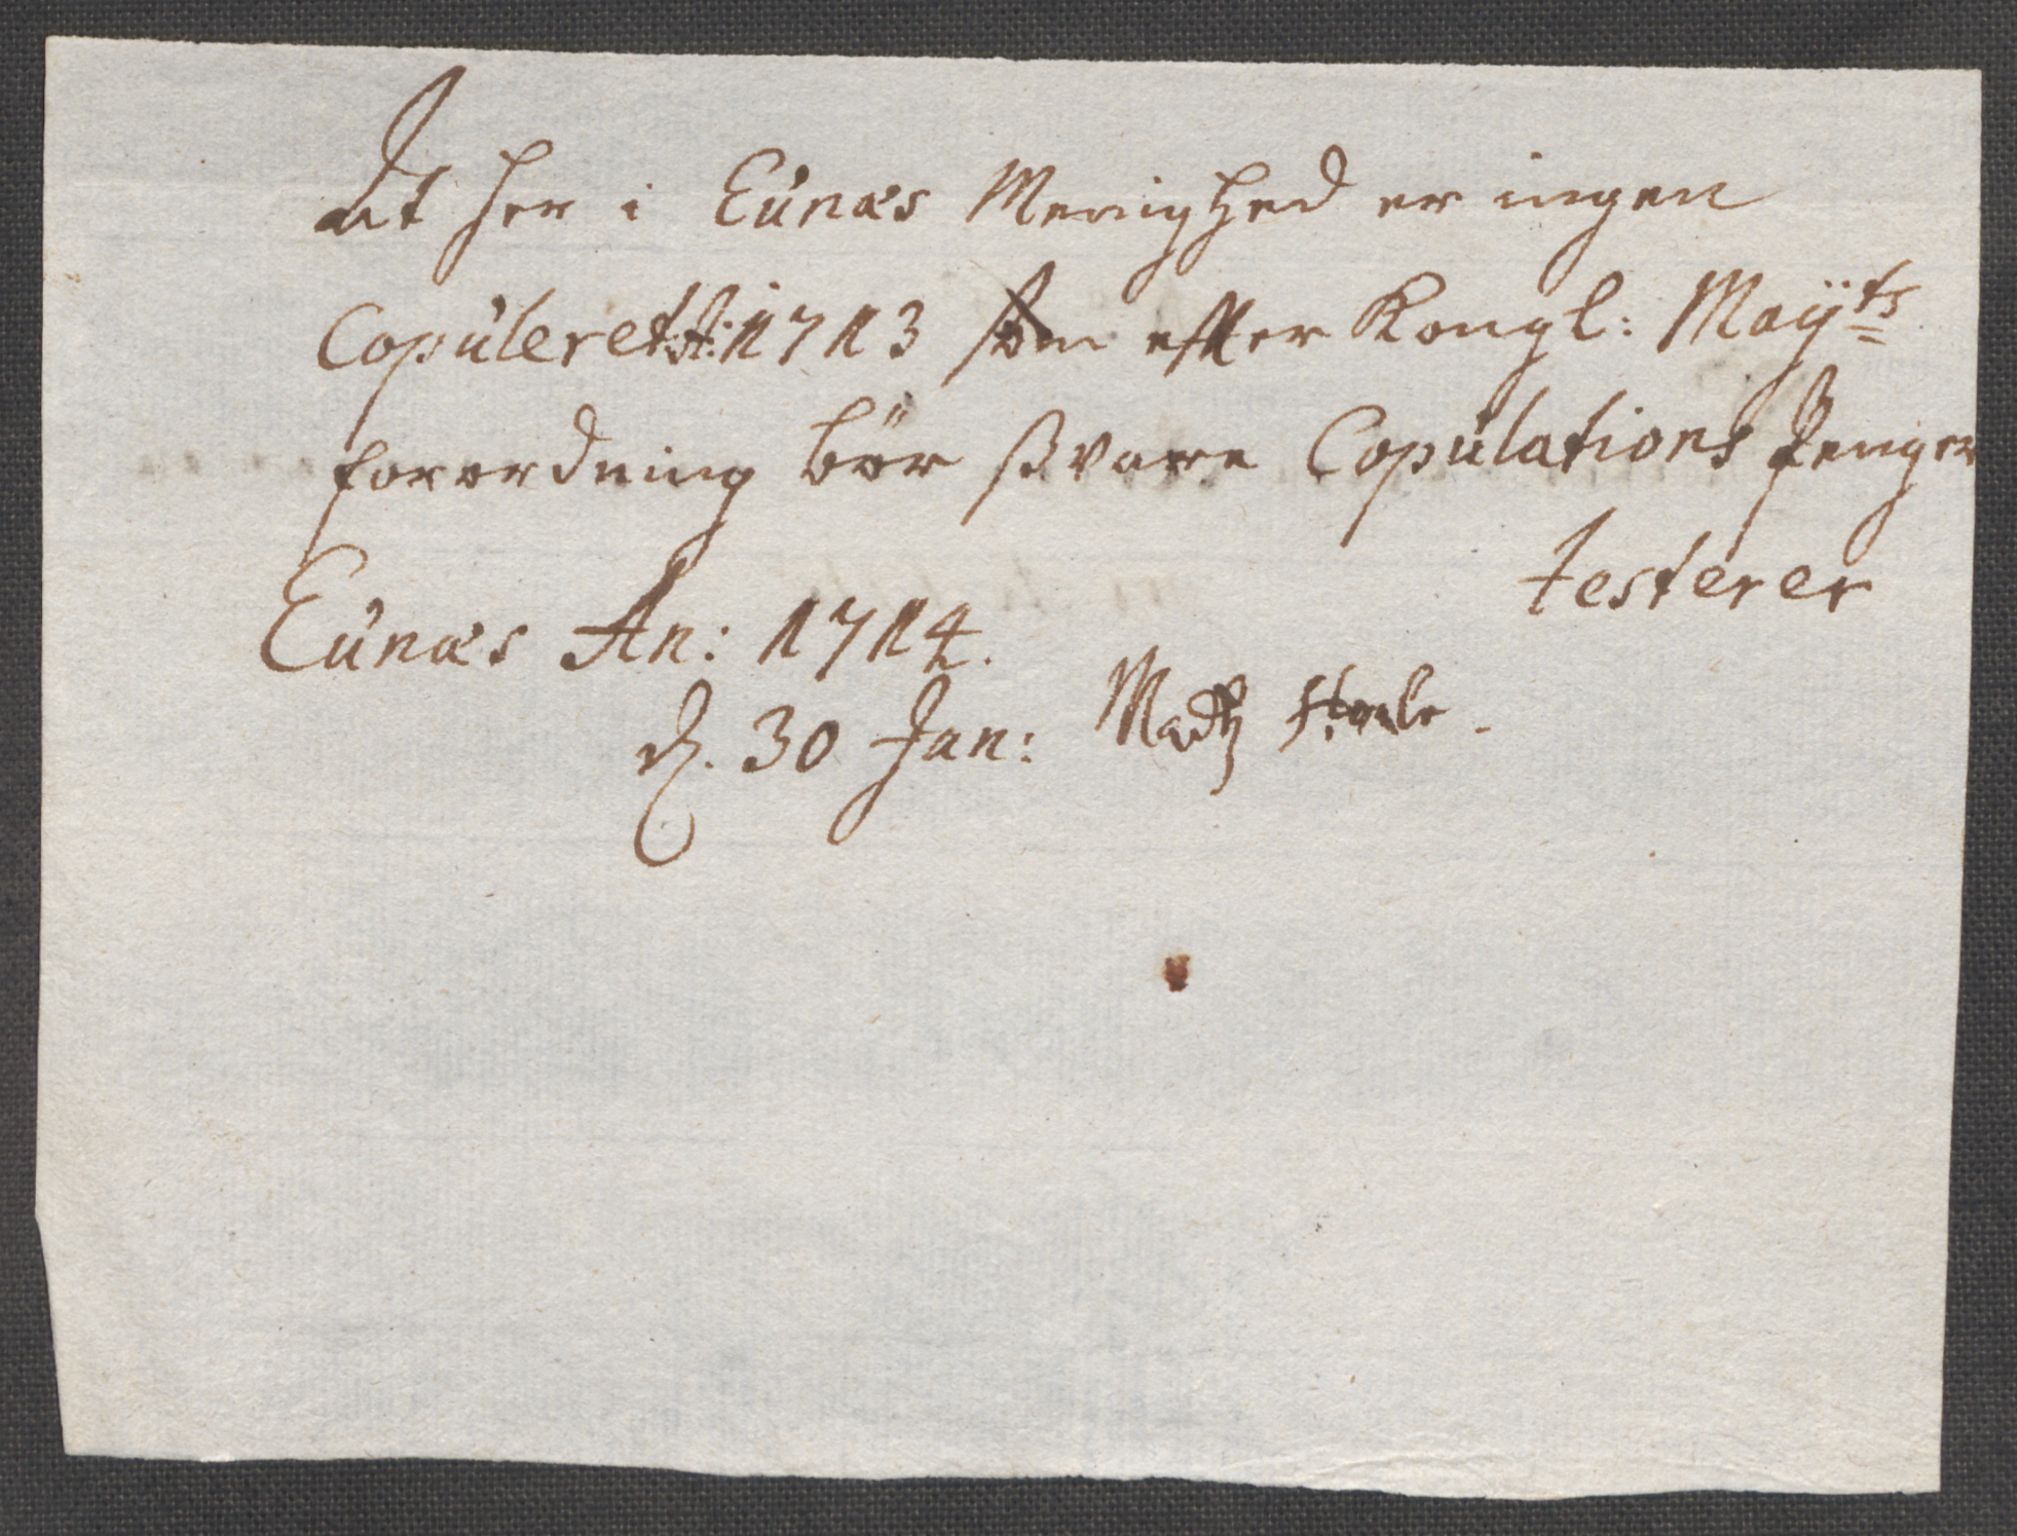 At her i Eünæs Menighed er ingen
Copüleret A: 1713 som efter Kongl: Mayts
forordning bör ßvare Copülations Penger
testerer
Eünæs An: 1714.
d. 30 Jan: Madtz